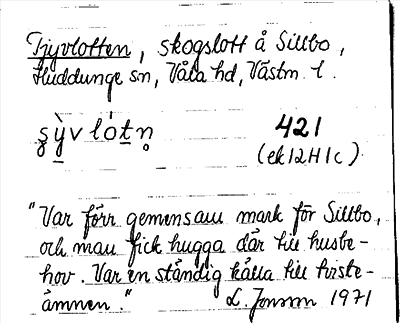 Tjyvlotten, skogslott å Sillbo,
Huddunge sn, Våla hd, Västm. l.
ṣỳ̲v lót̲n̥ 421
(ek 12H1c)
"Var förr gemensam mark för Sillbo,
och man fick hugga där till husbe-
hov. Var en ständig källa till tviste-
ämnen." L. Jonsson 1971